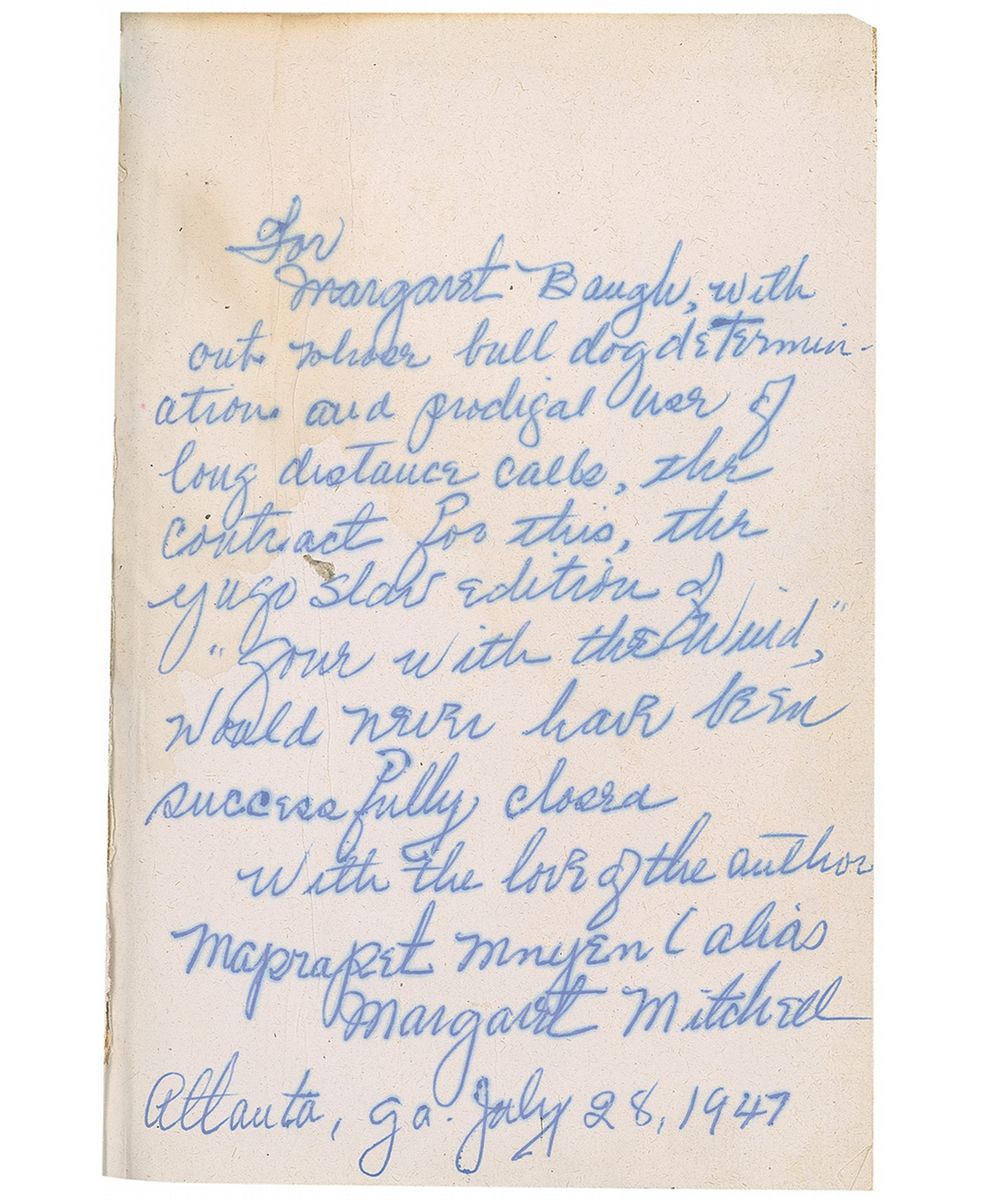 For
Margaret Baugh, with
out whose bull dog determin-
ation and prodigal use of
long distance calls, the
contract for this, the
yugo slav edition of
"Gone with the Wind,"
Would never have been
successfully closed
With the love of the author
Maprapet Mnyen (alias
Margaret Mitchell
Atlanta, Ga. July 28, 1947